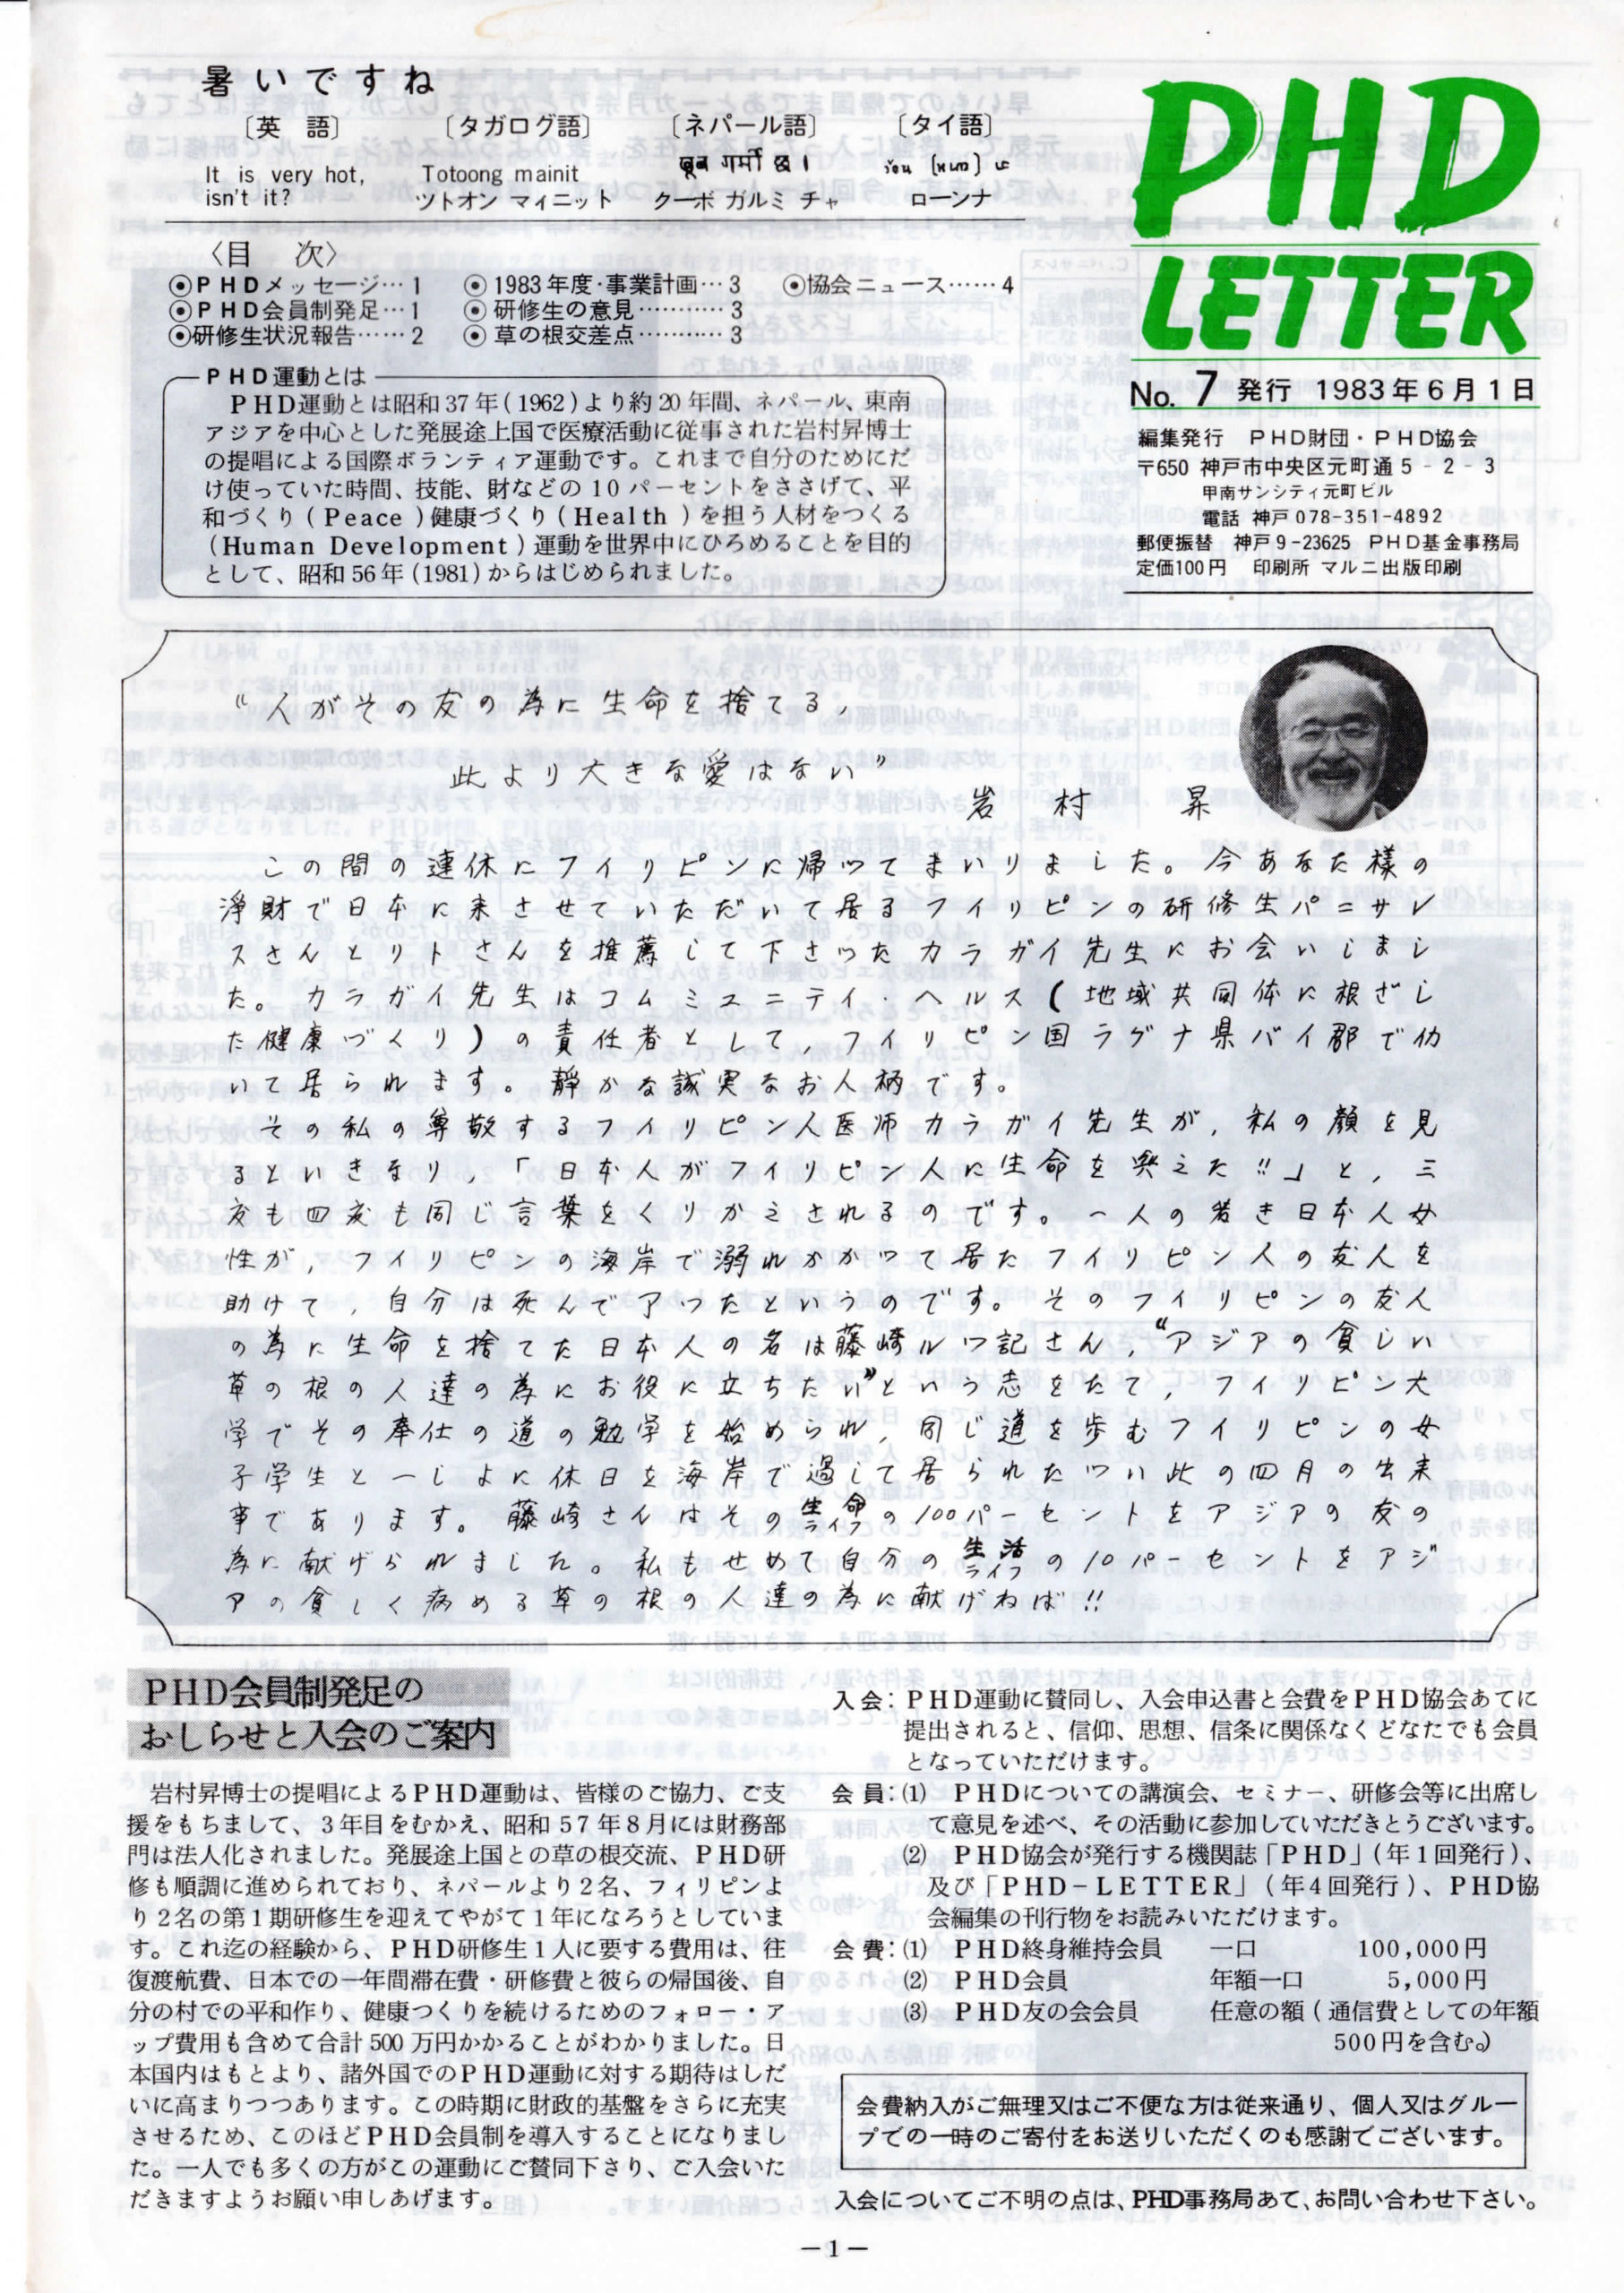 暑いですね
〔英 語〕 〔タガログ語〕 〔ネパール語〕 〔タイ語〕
It is very hot, isn't it?
Totoong mainit
ツトオン マィニット
クーボ ガルミ チャ
ローンナ
〈目 次〉
◉PHDメッセージ…1
◉PHD会員制発足…1
◉研修生状況報告……2
◉1983年度・事業計画…3
◉研修生の意見…………3
◉草の根交差点…………3
◉協会ニュース……4
PHD
LETTER
No. 7 発行 1983年6月1日
編集発行 PHD財団・PHD協会
〒650 神戸市中央区元町通5-2-3
甲南サンシティ元町ビル
電話 神戸078-351-4892
郵便振替 神戸9-23625 PHD基金事務局
定価100円 印刷所 マルニ出版印刷
PHD運動とは
PHD運動とは昭和37年(1962)より約20年間、ネパール、東南
アジアを中心とした発展途上国で医療活動に従事された岩村昇博士
の提唱による国際ボランティア運動です。これまで自分のためにだ
け使っていた時間、技能、財などの10パーセントをささげて、平
和づくり(Peace)健康づくり(Health)を担う人材をつくる
(Human Development)運動を世界中にひろめることを目的
として、昭和56年(1981)からはじめられました。
“人がその友の為に生命を捨てる,
此より大きな愛はない”
岩村 昇
この間の連休にフイリピンに帰ってまいりました。今あなた様の
浄財で日本に来させていただいて居るフイリピンの研修生パニサレ
スさんとリトさんを推薦して下さったカラガイ先生にお会いしまし
た。カラガイ先生はコムミユニテイ・ヘルス(地域共同体に根ざし
た健康づくり)の責任者として,フイリピン国ラグナ県バイ郡で仂
いて居られます。静かな誠実なお人柄です。
その私の尊敬するフイリピン人医师カラガイ先生が,私の顔を見
るといきなり,「日本人がフイリピン人に生命を与えた!!」と,三
度も四度も同じ言葉をくりかえされるのです。一人の若き日本人女
性が,フイリピンの海岸で溺れかかって居たフイリピン人の友人を
助けて,自分は死んで了ったというのです。そのフイリピンの友人
の為に生命を捨てた日本人の名は藤崎ルツ記さん,“アジアの貧しい
草の根の人達の為にお役に立ちたい”という志をたて,フイリピン大
学でその奉仕の道の勉学を始められ,同じ道を歩むフイリピンの女
子学生と一しよに休日を海岸で過して居られたつい此の四月の出来
事であります。藤崎さんはその生命(ライフ)の100パーセントをアジアの友の
為に献げられました。私もせめて自分の生活(ライフ)の10パーセントをアジ
アの貧しく病める草の根の人達の為に献げねば!!
PHD会員制発足の
おしらせと入会のご案内
岩村昇博士の提唱によるPHD運動は、皆様のご協力、ご支
援をもちまして、3年目をむかえ、昭和57年8月には財務部
門は法人化されました。発展途上国との草の根交流、PHD研
修も順調に進められており、ネパールより2名、フィリピンよ
り2名の第1期研修生を迎えてやがて1年になろうとしていま
す。これ迄の経験から、PHD研修生1人に要する費用は、往
復渡航費、日本での一年間滞在費・研修費と彼らの帰国後、自
分の村での平和作り、健康つくりを続けるためのフォロー・ア
ップ費用も含めて合計500万円かかることがわかりました。日
本国内はもとより、諸外国でのPHD運動に対する期待はしだ
いに高まりつつあります。この時期に財政的基盤をさらに充実
させるため、このほどPHD会員制を導入することになりまし
た。一人でも多くの方がこの運動にご賛同下さり、ご入会いた
だきますようお願い申しあげます。
入会:PHD運動に賛同し、入会申込書と会費をPHD協会あてに
提出されると、信仰、思想、信条に関係なくどなたでも会員
となっていただけます。
会員:(1) PHDについての講演会、セミナー、研修会等に出席し
て意見を述べ、その活動に参加していただきとうございます。
(2) PHD協会が発行する機関誌「PHD」(年1回発行)、
及び「PHD-LETTER」(年4回発行)、PHD協
会編集の刊行物をお読みいただけます。
会費:(1) PHD終身維持会員 一口 100,000円
(2) PHD会員 年額一口 5,000円
(3) PHD友の会会員 任意の額(通信費としての年額
500円を含む。)
会費納入がご無理又はご不便な方は従来通り、個人又はグルー
プでの一時のご寄付をお送りいただくのも感謝でございます。
入会についてご不明の点は、PHD事務局あて、お問い合わせ下さい。
－1－